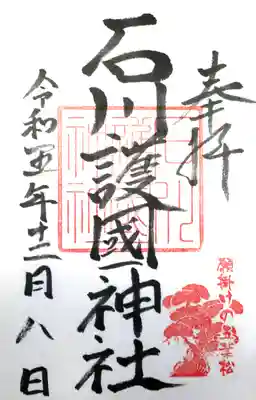 奉拝
石川護國神社
令和五年十二月八日
願掛けの